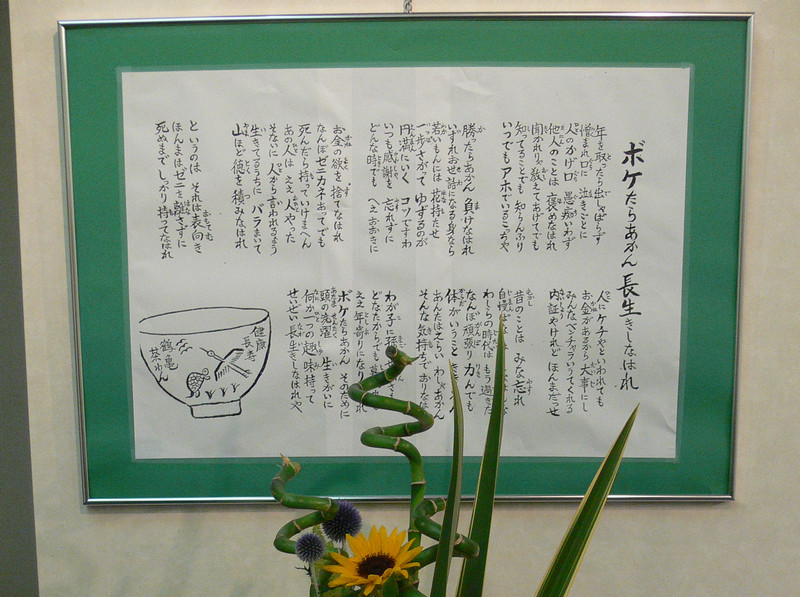 ボケたらあかん長生きしなはれ
年を取ったら出しゃばらず
憎まれ口に 泣きごとに
人のかげ口 愚痴いわず
他人のことは 褒めなはれ
聞かれりゃ教えてあげてでも
知ってることでも 知らんふり
いつでもアホでいるこっちゃ
勝ったらあかん 負けなはれ
いずれお世話になる身なら
若いもんには 花持たせ
一歩さがって ゆずるのが
円満にいく コツですわ
いつも感謝を 忘れずに
どんな時でも へえおおきに
お金の欲を 捨てなはれ
なんぼゼニカネあってでも
死んだら持っていけまへん
あの人は ええ人やった
そないに人から言われるよう
生きてるうちに バラまいて
山ほど徳を 積みなはれ
というのは それは表向き
ほんまはゼニを 離さずに
死ぬまで しっかり 持ってなはれ
人にケチやといわれても
お金があるから 大事にし
みんなベンチャラいうてくれる
内証やけれど ほんまだっせ
昔のことは みな忘れ
自慢
わしらの時代は もう過ぎた
なんぼ頑張り 力んでも
体がいうこと
あんたはえらい わしゃあかん
そんな気持ちで おりなはれ
わが子に孫
どなたからでも
ええ年寄りに なりなはれ
ボケたらあかん そのために
頭の洗濯 生きがいに
何か一つの 趣味持って
せいぜい長生きしなはれや
健康
長寿
鶴亀
茶わん